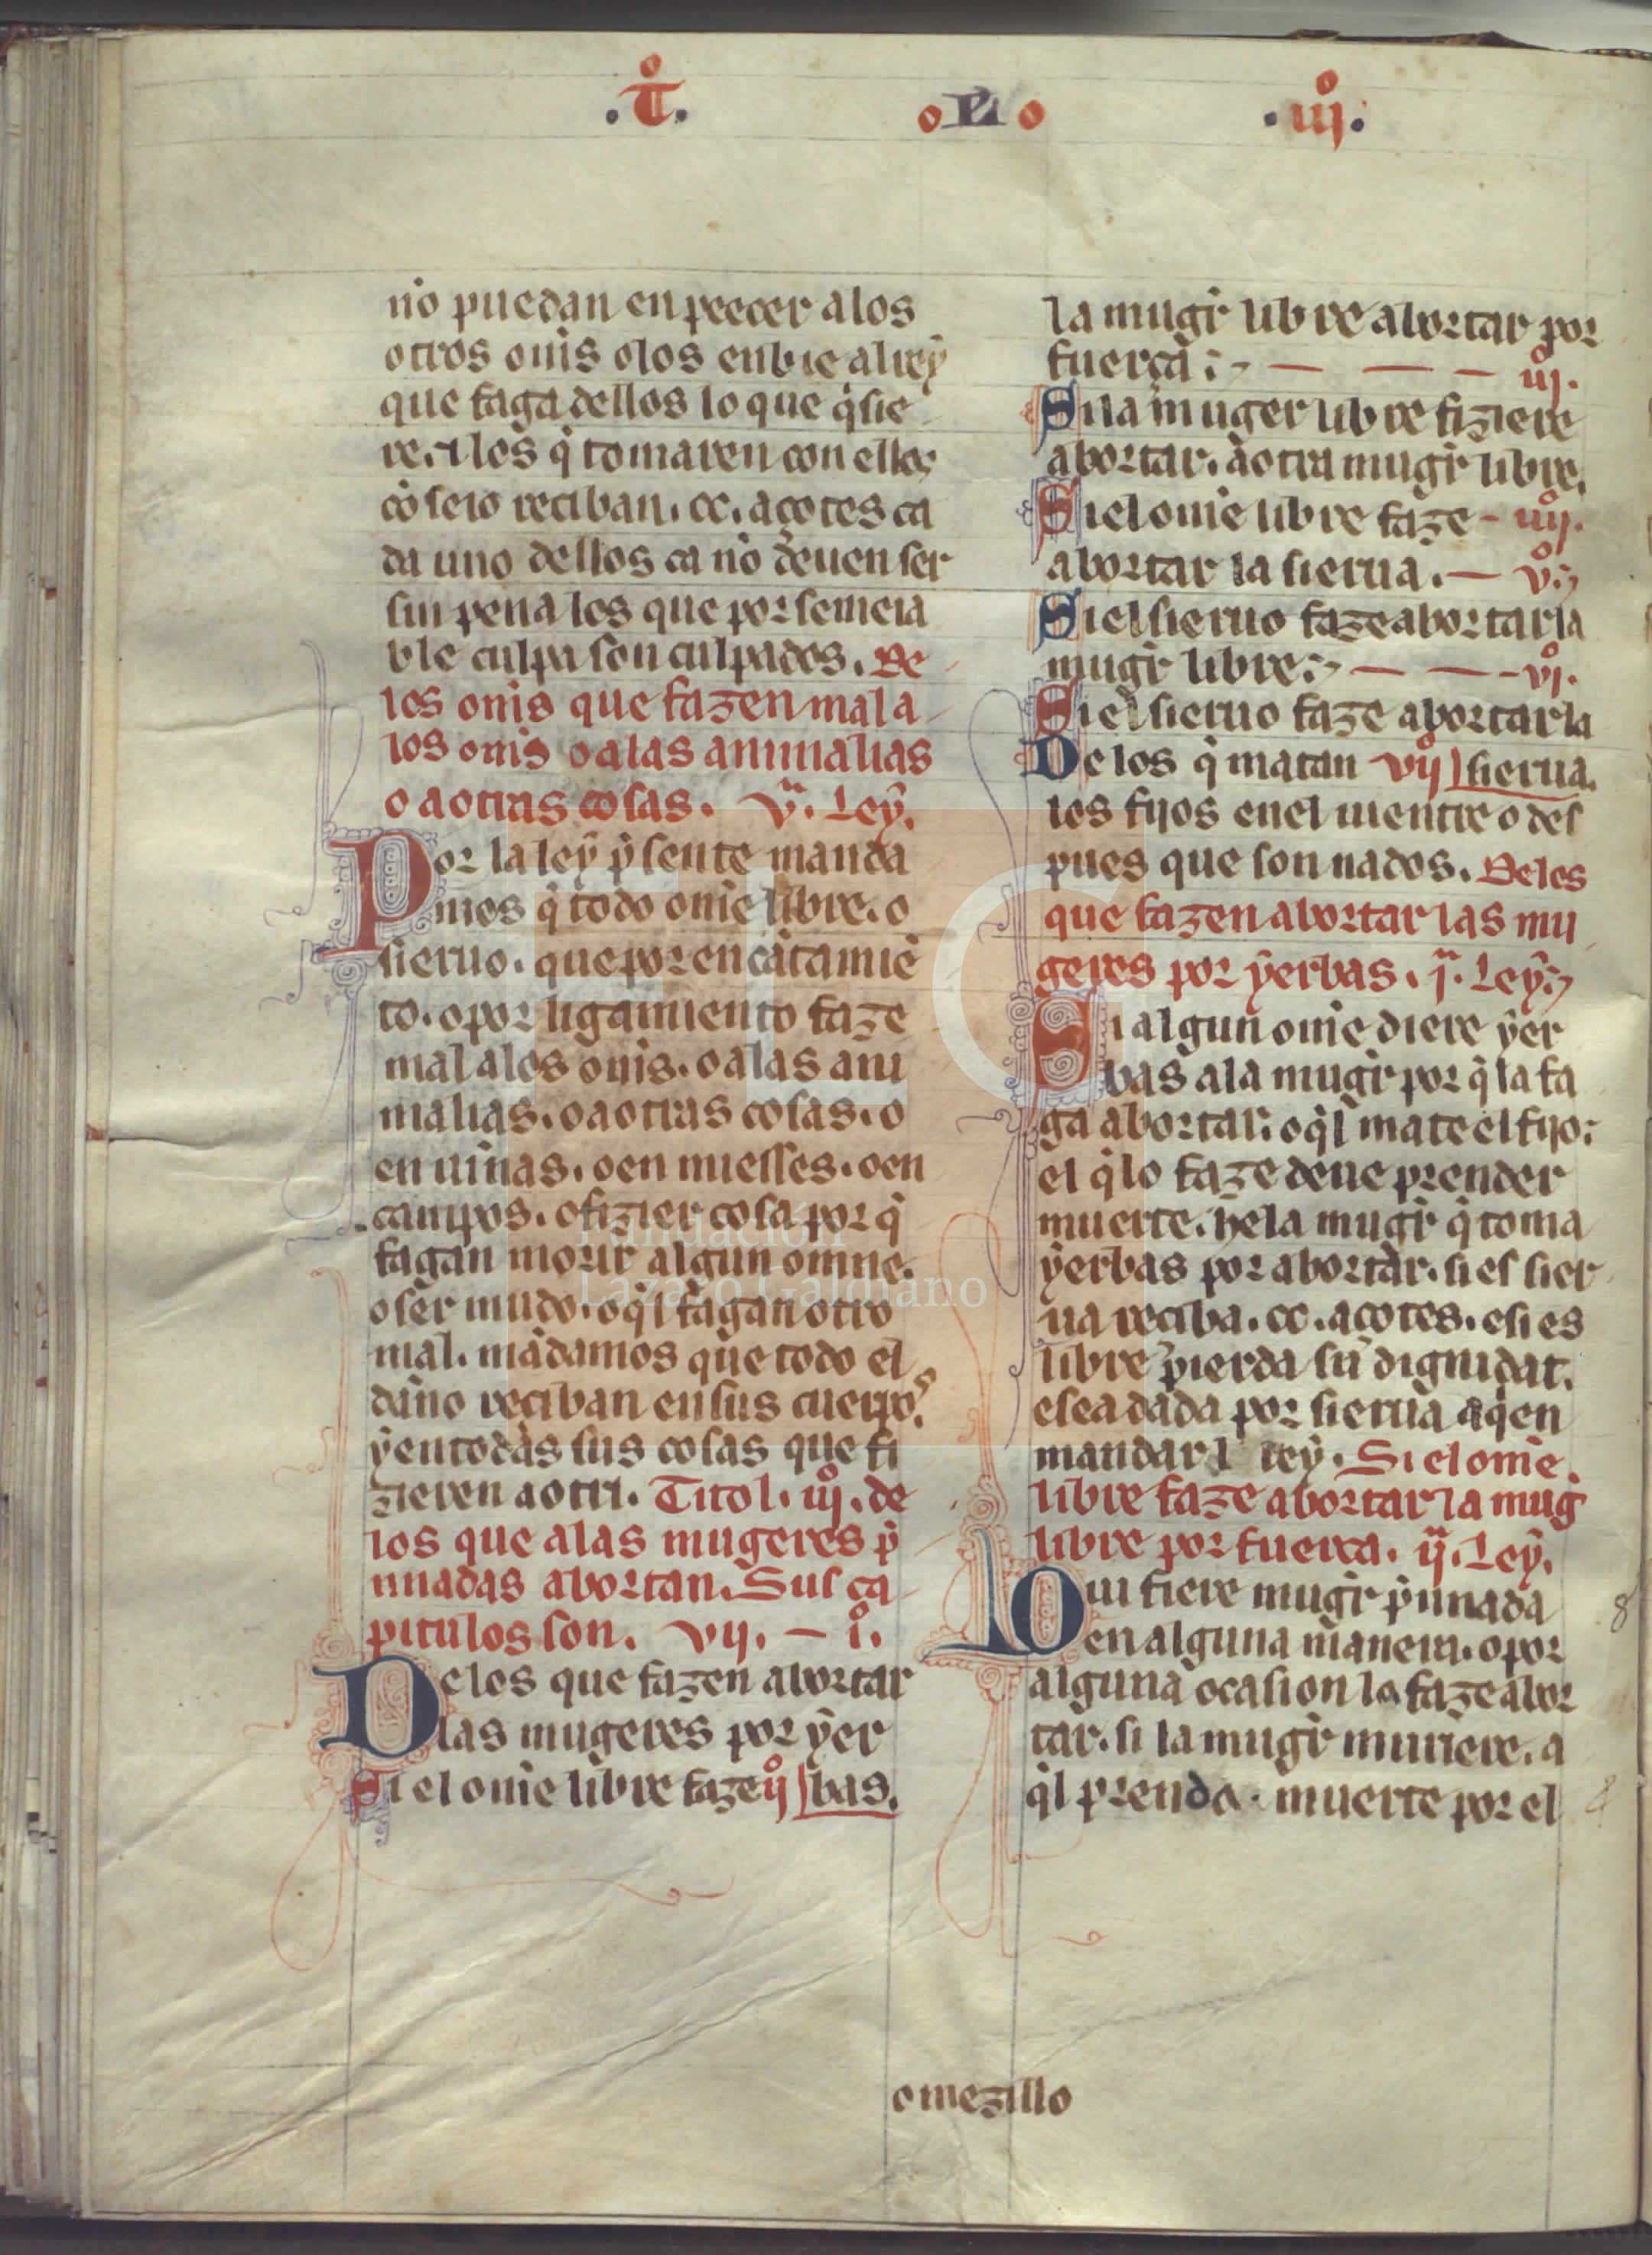 .T̊. L .iij̊.
nō puedan enpeecer a los
otros om̄s o los enbie al rey
que faga dellos lo que q̄sie
re. ⁊ los q̄ tomaren con ellos
cōseio reciban. cc. açotes ca
da uno dellos ca nō deuen ser
sin pena los que por semeia
ble culpa son culpados. De
los om̄s que fazen mal a
los om̄s o a las animalias
o a otras cosas. v.ª Ley.
Por la ley p̄sente manda
mos q̄ todo om̄e libre. o
sieruo. que por encātamiē
to. o por ligamiento faze
mal a los om̄s. o a las ani
malias. o a otras cosas. o
en uinas. o en miesses. o en
campos. o fizier cosa por q̄
fagan morir algun omne.
o ser mudo. o q̄l fagan otro
mal. mādamos que todo el
dāno reciban en sus cuerpos.
y en todas sus cosas que fi
zieren a otri. Titol. iij̊. de
los que a las mugeres p̄
nnadas abortan. Sus ca
pitulos son. vij. — i̊.
De los que fazen abortar
las mugeres por yer
Si el om̄e libre faze ij̊ bas.
la mugr̄ libre abortar por
fuerça: — — — iij̊.
Si la muger libre fiziere
abortar. a otra mugr̄ libre.
Si el om̄e libre faze - iiij̊.
abortar la sierua. — v̊.
Si el sieruo faze abortar la
mugr̄ libre: — — - vj̊.
Si el sieruo faze abortar la
De los q̄ matan vij̊ sierua.
los fijos en el uientre o des
pues que son nados. De los
que fazen abortar las mu
geres por yerbas. j.ª Ley.
Si algun om̄e diere yer
bas a la mugr̄ por q̄ la fa
ga abortar. o q̄l mate el fijo:
el q̄ lo faze deue prender
muerte. y e la mugr̄ q̄ toma
yerbas por abortar. si es sier
ua reciba. cc. açotes. e si es
libre pierda su dignidat.
e sea dada por sierua a q̄en
mandar l rey. Si el om̄e
libre faze abortar la mug
libre por fuerça. ij.ª Ley.
Qui fiere mugr̄ p̄nnada
en alguna manera. o por
alguna ocasion la faze abor
tar. si la mugr̄ muriere. a
q̄l prenda. muerte por el
omezillo